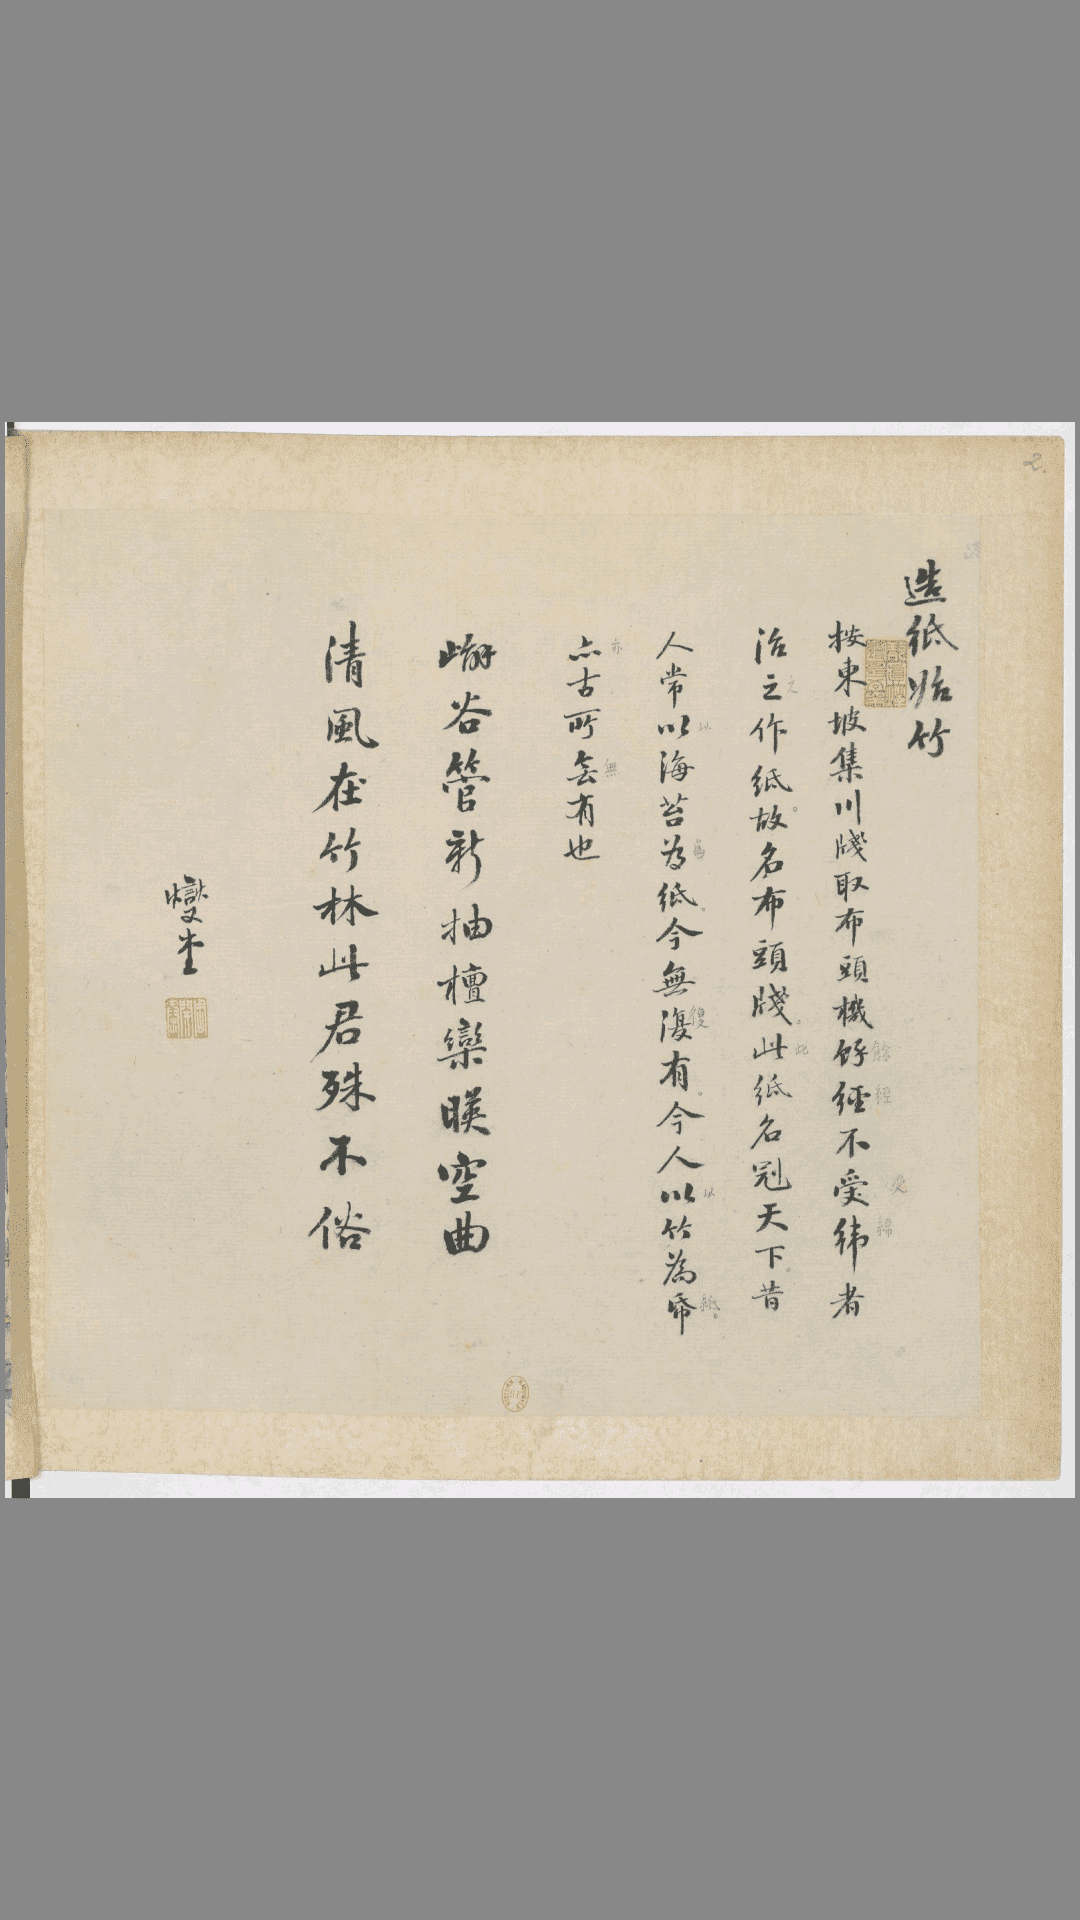 造紙始竹
按東坡集川牋取布頭機餘經不受緯者
治之作紙故名布頭牋此紙名冠天下昔
人常以海苔為紙今無復有今人以竹為帋
亦古所無有也
嶰谷管新抽檀欒暎空曲
清風在竹林此君殊不俗
燮堂
2.